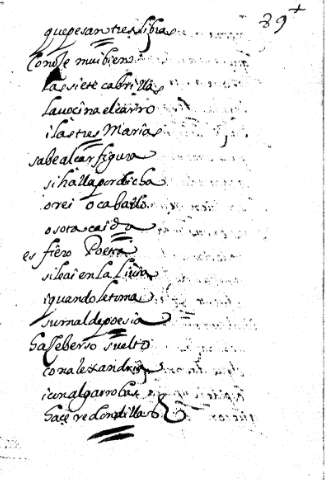 39
quepesan tres libras
Conoçe mui bien
las siete cabrillas
la vocina el carro
i las tres Marias
sabe alçar figura
si halla por dicha
o rei o caballo
o sota caida
es fiero Poeta
si le ai en la Libia
i quando le toma
su mal de poesia
haçe berso suelto
con alexandria
i con algarrobas
haçe redondillas